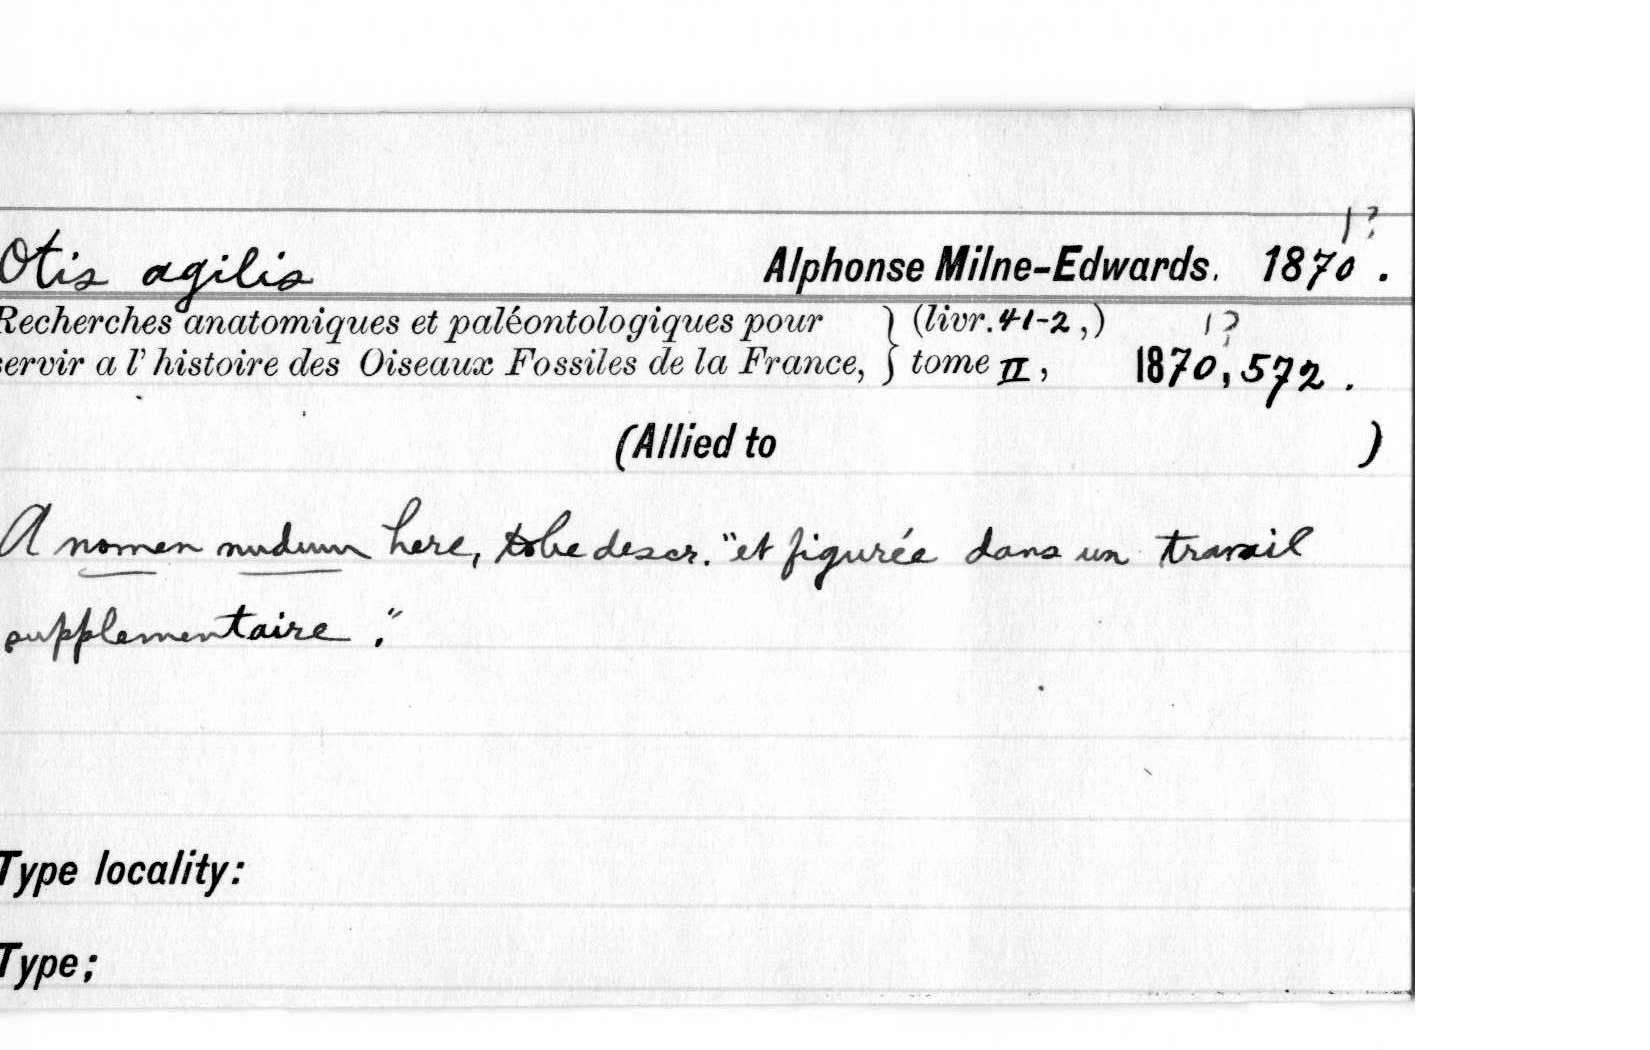 1?
Otis agilis Alphonse Milne-Edwards. 1870.
Recherches anatomiques et paléontologiques pour } (livr. 41-2,) 1?
servir a l'histoire des Oiseaux Fossiles de la France, } tome II, 1870, 572.
(Allied to )
A nomen nudum here, to be descr. "et figurée dans un travail
supplementaire."
Type locality:
Type;